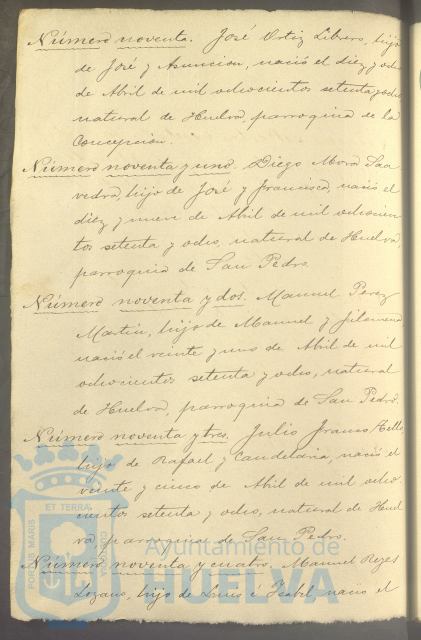 Número noventa. José Ortiz Librero, hijo
de José y Asuncion, nació el diez y ocho
de Abril de mil ochocientos setenta y ocho
natural de Huelva, parroquia de la
Concepcion.
Número noventa y uno. Diego Mora Saa
vedra, hijo de José y Francisca, nació el
diez y nueve de Abril de mil ochocien
tos setenta y ocho, natural de Huelva,
parroquia de San Pedro
Número noventa y dos. Manuel Perez
Martin, hijo de Manuel y Filomena
nació el veinte y uno de Abril de mil
ochocientos setenta y ocho, natural
de Huelva, parroquia de San Pedro.
Número noventa y tres. Julio Franco
hijo de Rafael y Candelaria, nació el
veinte y cinco de Abril de mil ocho
cientos setenta y ocho, natural de Huel
va, parroquia de San Pedro.
Número noventa y cuatro. Manuel Reyes
Lozano, hijo de Luis é Isabel nació el
PORTUS MARIS
ET TERRAE
CUSTODIA
Ayuntamiento de
HUELVA